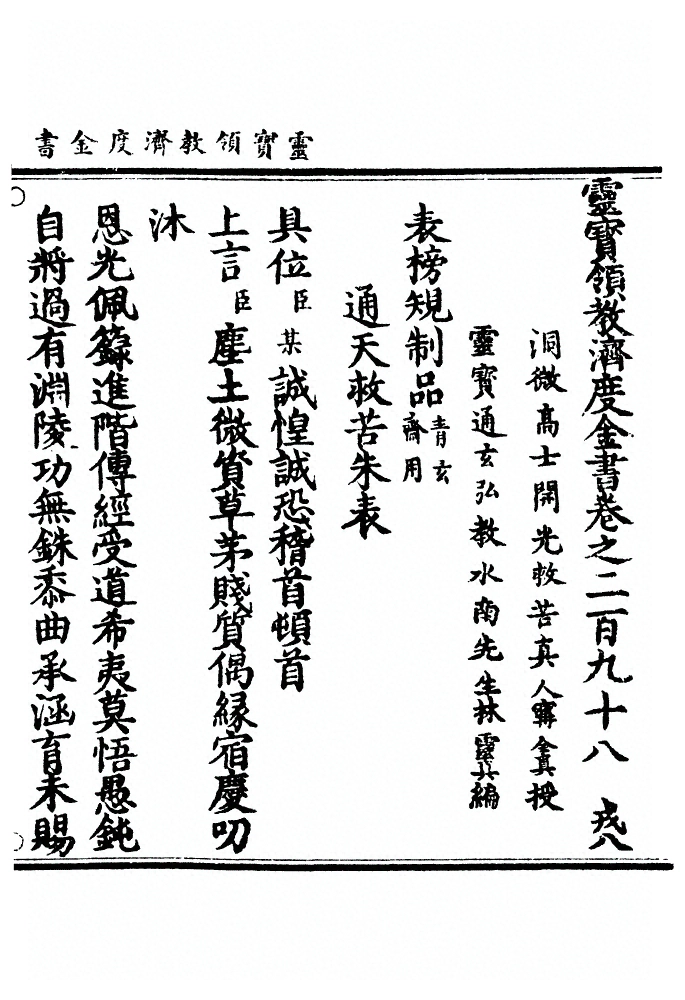 靈寶領教濟度金書
靈寶領教濟度金書卷之二百九十八 戎八
洞微高士開光救苦真人甯全真授
靈寶通玄弘教水南先生林靈真編
表榜規制品 青玄齋用
通天救苦朱表
具位臣某誠惶誠恐稽首頓首
上言臣塵土微質草茅賤質偶緣宿慶叨
沐
恩光佩籙進階傳經受道希夷莫悟愚鈍
自將過有淵陵功無銖黍曲承涵育未賜